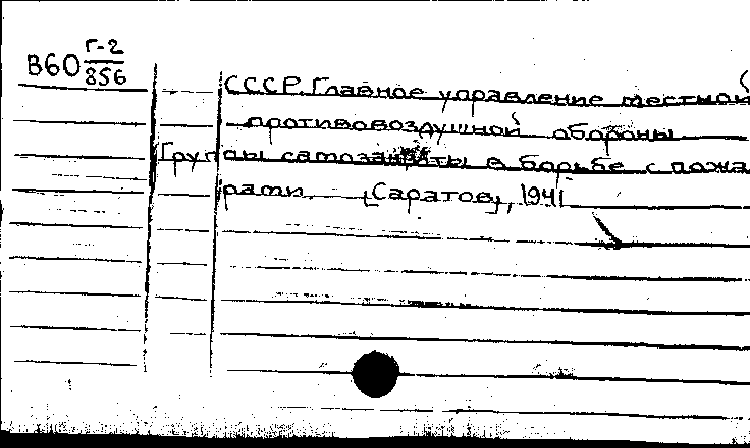 В60 Г-2/856
СССР. Главное управление местной
противовоздушной обороны
Группы самозащиты в борьбе с пожа
рами. [Саратов], 1941